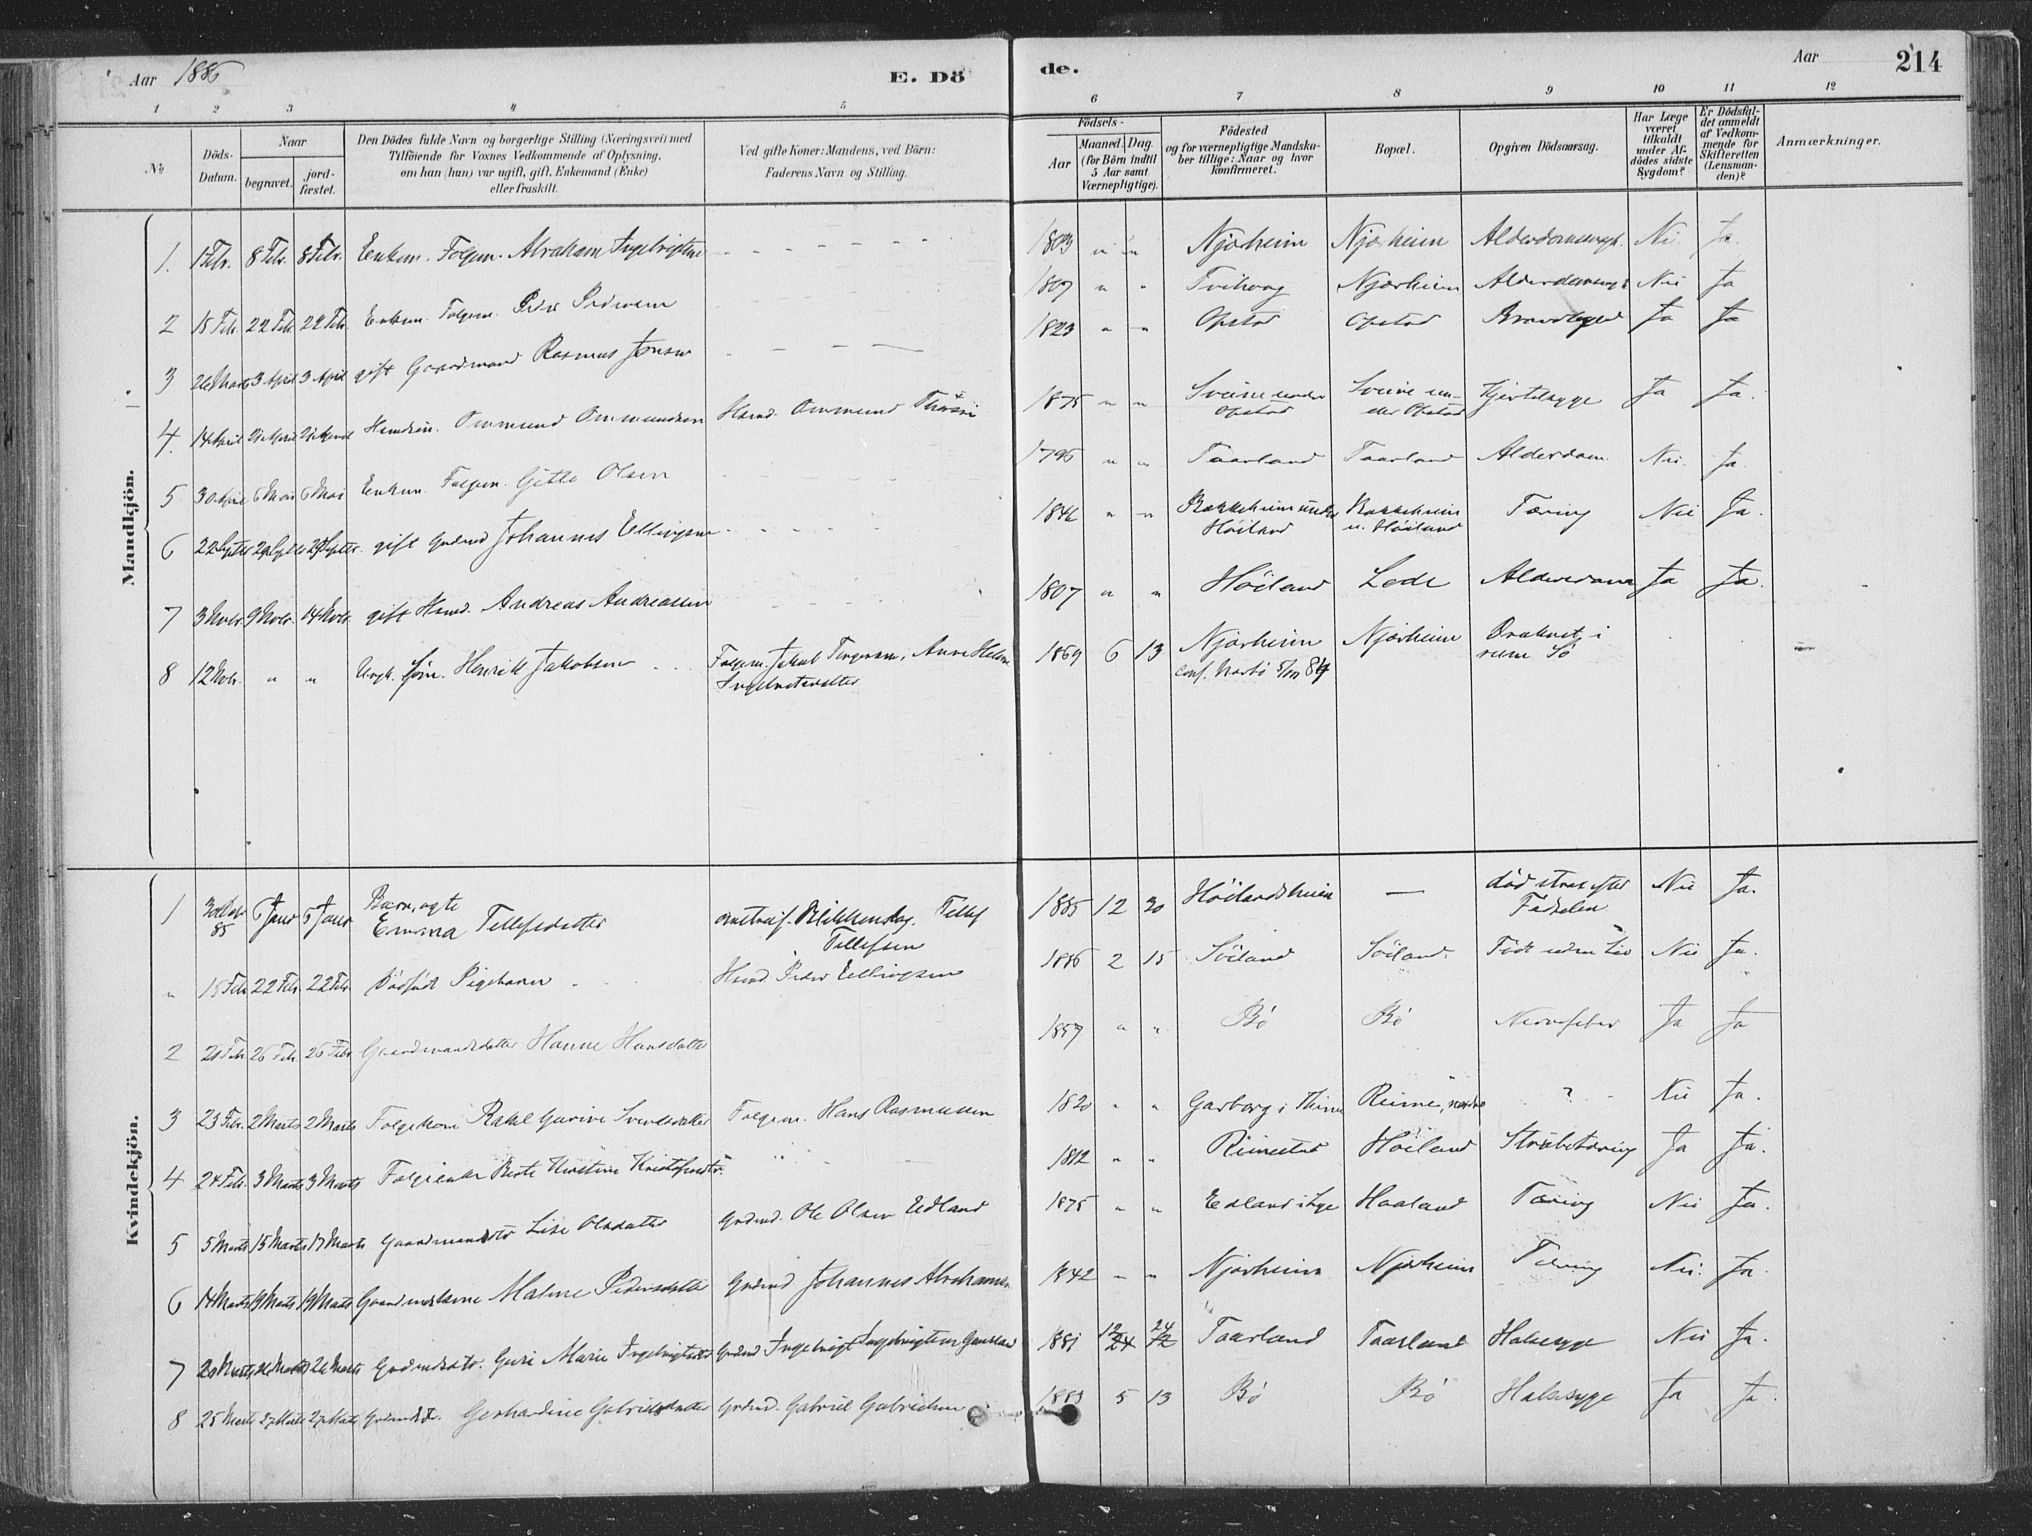 Aar 1886
E. Dö
de.
Aar
214
1 2 3 4 5 6 7 8 9 10 11 12
No
Döds-Datum.
Naar
begravet.
jord-fæstet.
Den Dödes fulde Navn og borgerlige Stilling (Næringsvei) med
Tilföiende for Voxnes Vedkommende af Oplysning,
om han (hun) var ugift, gift, Enkemand (Enke)
eller fraskilt.
Ved gifte Koner: Mandens, ved Börn:
Faderens Navn og Stilling.
Födsels-
Aar
Maaned.
Dag.
(for Börn indtil
5 Aar samt
Værnepligtige).
Födested
og for værnepligtige Mandska-
ber tillige: Naar og hvor
konfirmeret.
Bopæl.
Opgiven Dödsaarsag.
Har Læge
været
tilkaldt
under Af-
dödes sidste
Sygdom?
Er Dödsfal-
det anmeldt
af Vedkom-
mende for
Skifteretten
(Lensman-
den)?
Anmærkninger.
Mandkjön.
1. 1 Febr. 8 Febr. 8 Febr. Enkem. Folgem. Abraham Ingebrigtsen 1803 " " Njærheim Njærheim Alderdomssvagh. Nei. Ja.
2 15 Feb. 22 Feb. 22 Feb. Enkem. Folgem. Peder Pedersen 1807 " " Tvihoug Njærheim Alderdomssvagh. Nei Ja
3 26 Marts 3 April 3 April gift Gaardmand Rasmus Jonsen 1823 " " Opstad Opstad Ja Ja
4. 14 April 21 April 21 April Husm. søn. Ommund Ommundsen Husmd. Ommund 1875 " " Sveine under Opstad Sveine un-der Opstad Hjertesyge Ja Ja.
5 30 April 6 Mai 6 Mai Enkem. Folgem. Gitle Olsen 1796 " " Taarland Taarland Alderdom Nei. Ja.
6 22 Septbr 29 Septbr 29 Septbr. gift Grdmd Johannes Ellingsen 1846 " " Bakkeheim under Höiland Bakkeheim u. Höiland Tæring Nei Ja.
7 3 Novbr. 9 Novbr. 14 Novbr. gift Husmd. Andreas Andreassen 1807 " " Höiland Lode Alderdom Ja Ja.
8 12 Novbr. " " Ungk. Søn. Henrik Jakobsen Folgem. Jakob Torgersen, Anne Helene Ingebretsdatter 1869 6 13 Njærheim conf. Narbö 5/10 84 Njærheim Druknet i Sö
Kvindekjön.
1 30 Decbr 85 6 Janr 6 Janr Barn, ægte Emma Tellefsdatter Tellef Tellefsen 1885 12 20 Höilandsheim — död strax efter Födselen Nei Ja.
" 15 Febr 22 Febr. 22 Febr. Dödfödt Pigebarn Husmd. Peder Ellingsen 1886 2 15 Söiland Söiland. Född uden Liv Nei Ja.
2 21 Febr 26 Febr. 26 Febr Gaardmandsdatter Hanne Hansdatter 1857 " " Bö Bö Nervefeber Ja Ja
3 23 Febr. 2 Marts 2 Marts Folgekone Rakel Gurine Sveinsdatter Folgem. Hans Rasmussen 1820 " " Garborg i Thime Reime, nordre ? Nei Ja.
4 24 Febr. 3 Marts 3 Marts Folgeenke Berte Kirstine Kristofersdtr. 1812 " " Rimestad Höiland Strubetæring Ja Ja.
5 5 Marts 15 Marts 17 Marts Gaardmandsdtr Lise Olsdatter Grdmd. Ole Olsen Edland 1875 " " Edland i Lye Haaland Tæring Nei Ja.
6 14 Marts 19 Marts 19 Marts Gaardmdskone Malene Pedersdatter Grdmd Johannes Abrahamsen 1842 " " Njærheim Njærheim Tæring Nei. Ja.
7 20 Marts 26 Marts 26 Marts Grdmdsdtr. Guri Marie Ingebrigtsdtr Grdmd Ingebrigt Ingebrigtsen 1881 12 24 24 12 Taarland Taarland Halssyge Nei Ja.
8 25 Marts 27 Marts 27 Marts Grdmdsdtr. Gerhardine Gabrielsdatter Grdmd. Gabriel Gabrielsen 1883 5 13 Bö Bö Halssyge Ja Ja.